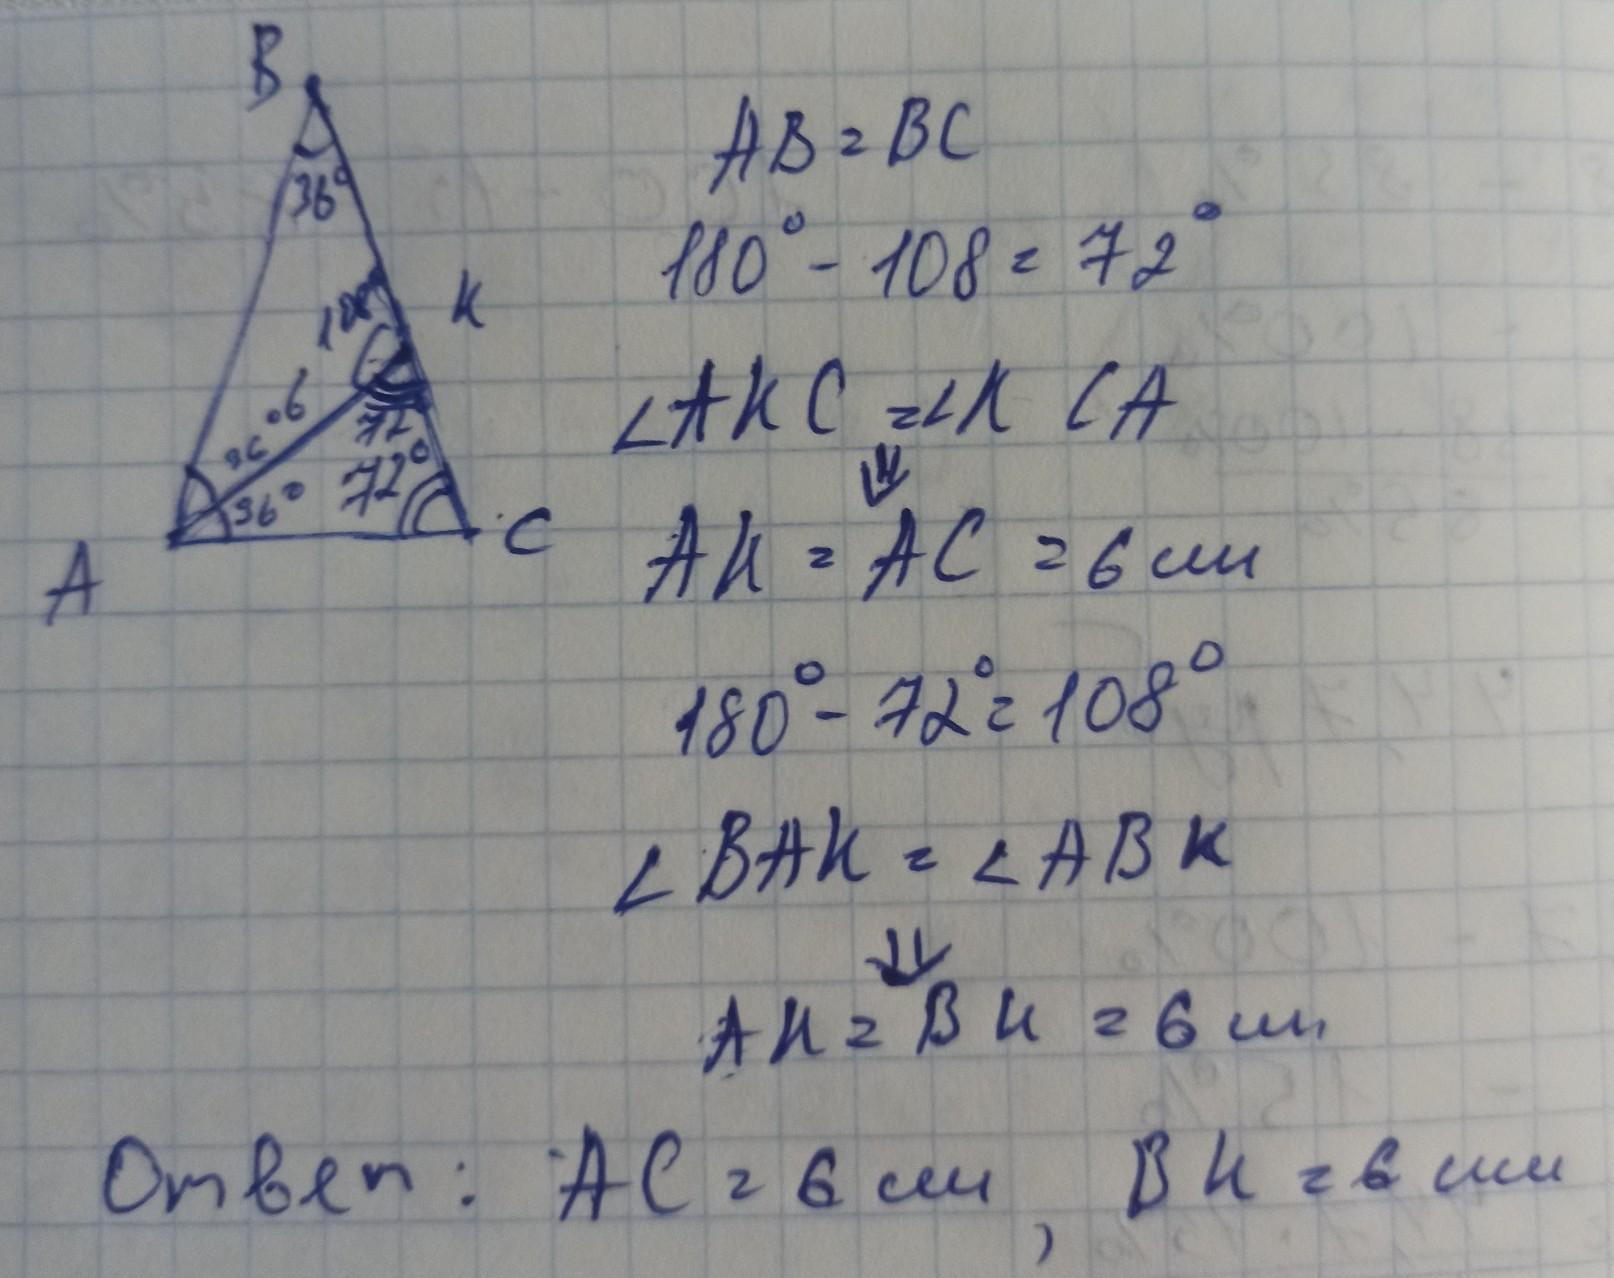 B
36°
108
K
6
36°
72
36°
72°
A
C
AB = BC
180° - 108 = 72°
∠AKC = ∠KCA
⇓
AK = AC = 6 см
180° - 72° = 108°
∠BAK = ∠ABK
⇓
AK = BK = 6 см
Ответ: AC = 6 см, BK = 6 см